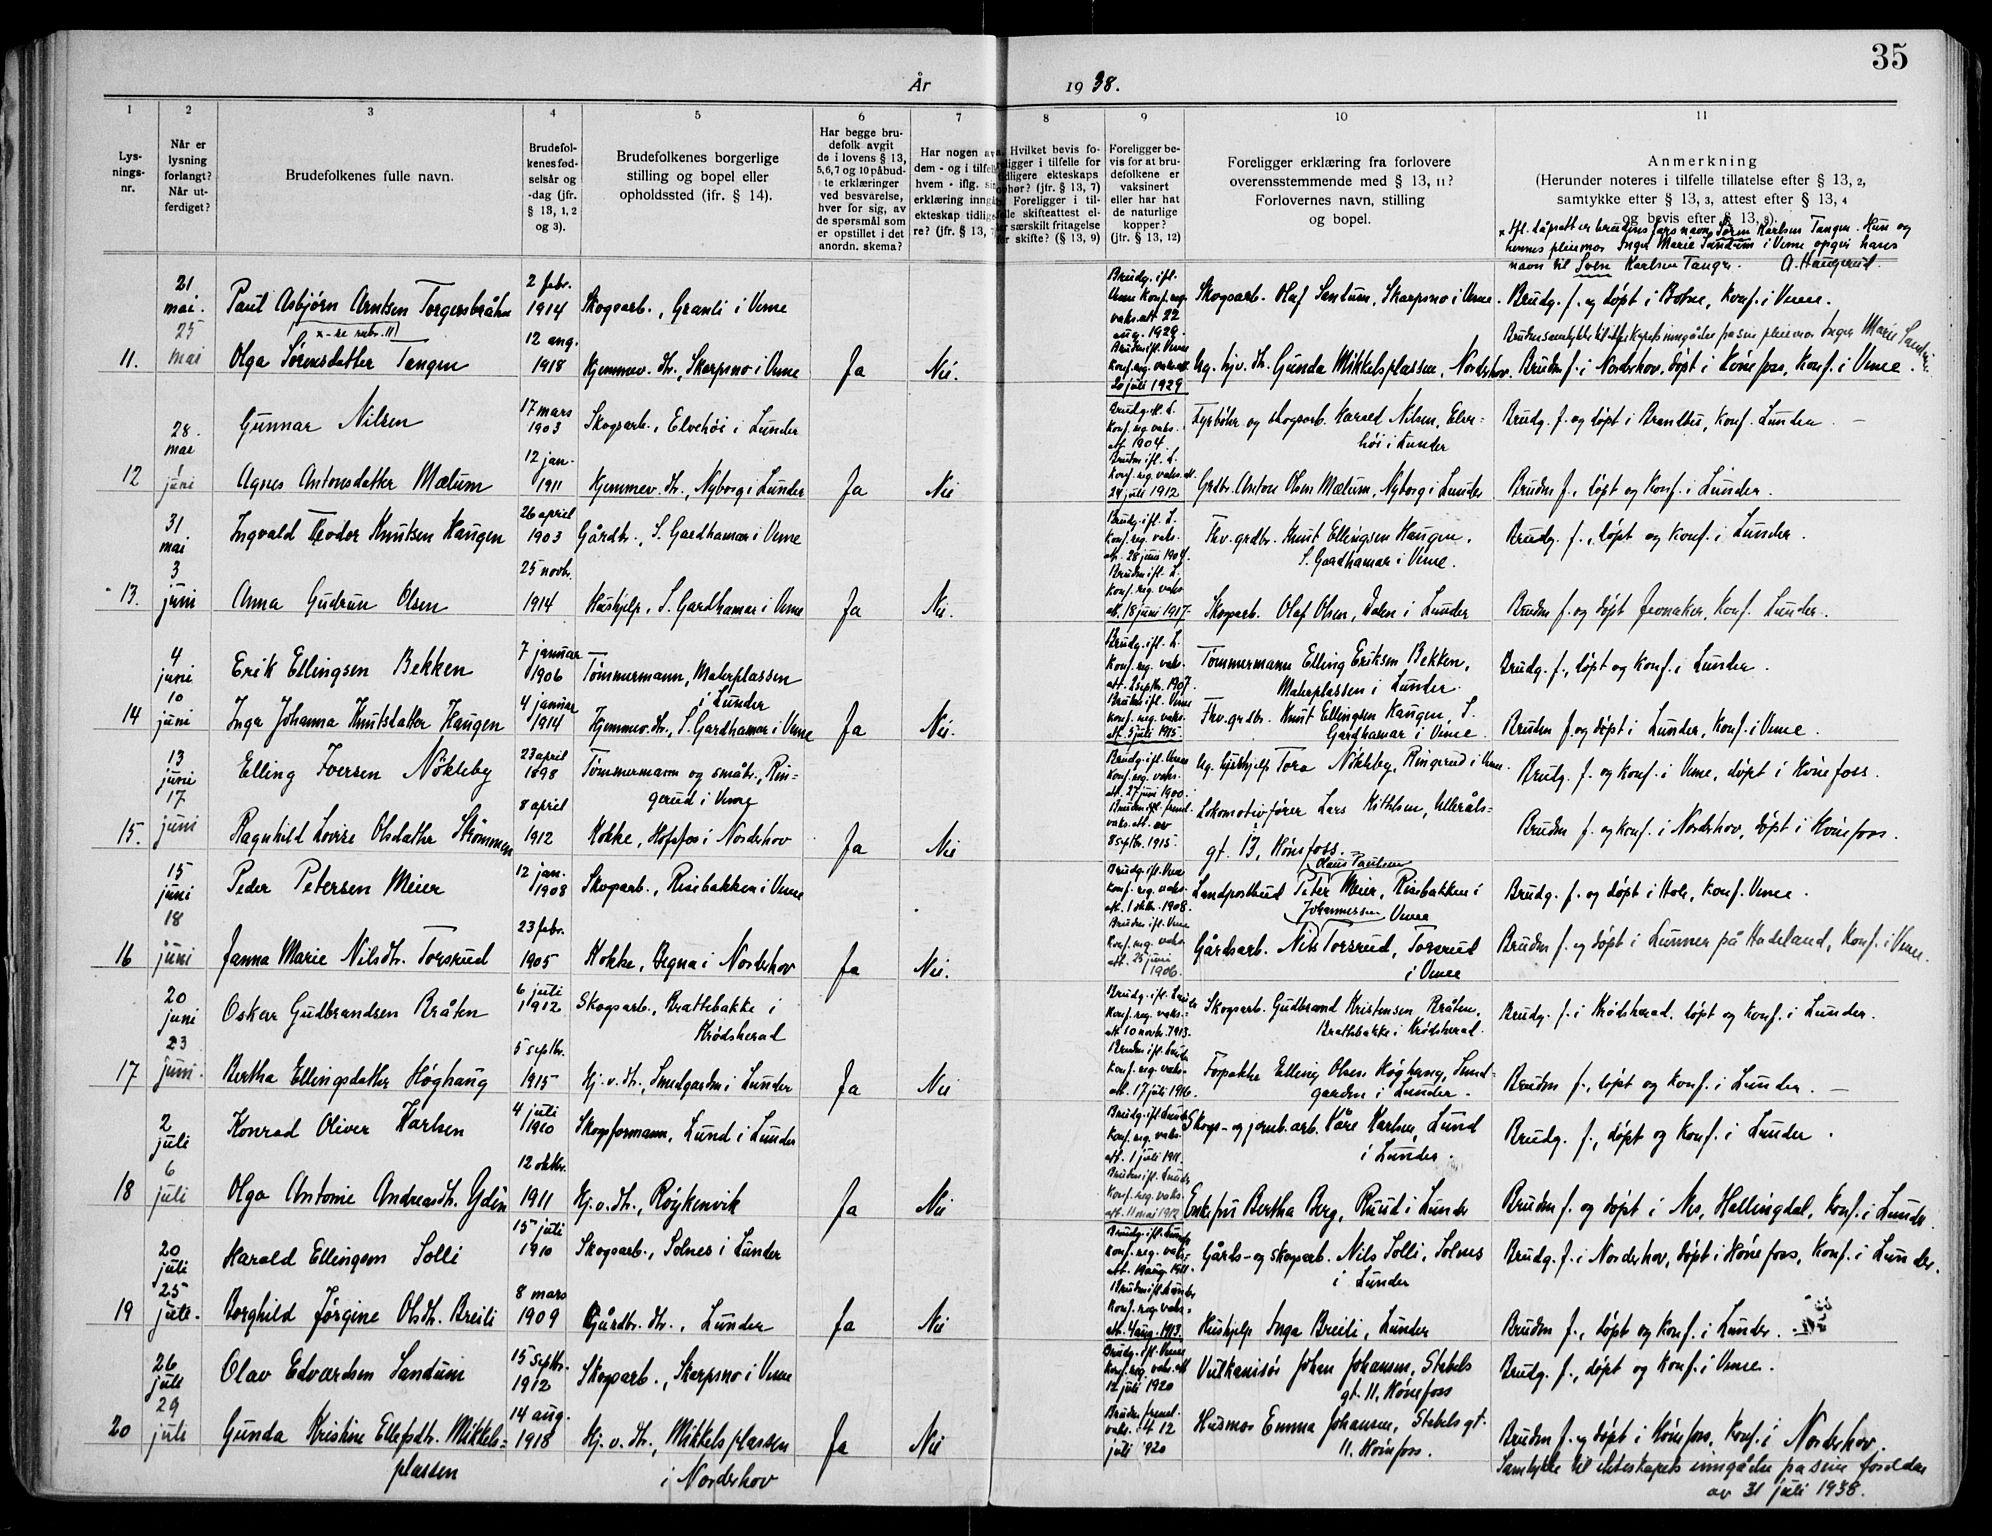 35
År 1938.
1 2 3 4 5 6 7 8 9 10 11
Lys-
nings-
nr.
Når er
lysning
forlangt?
Når ut-
ferdiget?
Brudefolkenes fulle navn.
Brudefol-
kenes fød-
selsår og
-dag (jfr.
§ 13, 1, 2
og 3).
Brudefolkenes borgerlige
stilling og bopel eller
opholdssted (ifr. § 14).
Har begge bru-
defolk avgit
de i lovens § 13,
5, 6, 7 og 10 påbud-
te erklæringer
ved besvarelse,
hver for sig, av
de spørsmål som
er opstillet i det
anordn. skema?
Har nogen av
dem - og i tilfelle
hvem - iflg.
erklæring inngå
ekteskap tidlig
re? (jfr. § 13,
Hvilket bevis fo-
religger i tilfelle for
tidligere ekteskaps
ophør? (jfr. § 13, 7)
Foreligger i til-
felle skifteattest el-
ler særskilt fritagelse
for skifte? (§ 13, 9)
Foreligger be-
vis for at bru-
defolkene er
vaksinert
eller har hat
de naturlige
kopper?
(jfr. § 13, 12)
Foreligger erklæring fra forlovere
overensstemmende med § 13, 11?
Forlovernes navn, stilling
og bopel.
Anmerkning
(Herunder noteres i tilfelle tillatelse efter § 13, 2,
samtykke efter § 13, 3, attest efter § 13, 4
og bevis efter § 13, 8).
x Ifl. dåpsatt er brudens fars navn Søren Karlsen Tangen. Hun og
hennes pleiemor Inger Marie Sandum i Veme opgir hans
navn til Sven Karlsen Tangen. A. Haugerud.
21 mai. Paul Asbjørn Arntsen Torgersbråten 2 febr. 1914 Skogsarb., Granli i Veme Brudg. ifl. Veme Konf.reg. vaks. att. 22 aug. 1929. Skogsarb. Olaf Sandum, Skarpsno i Veme. Brudg. f. og døpt i Botne, Konf. i Veme.
x-se rubr. 11
Bruden samtykke til ekteskapets inngåelse fra sin pleiemor Inger Marie Sandum.
11. 25 mai Olga Sörensdatter Tangen 12 aug. 1918 Hjemmev. dtr., Skarpsno i Veme Ja Nei. Bruden ifl. Veme Konf.reg. vaks. att. 20 juli 1929 Ug. hjv. dtr. Gunda Mikkelsplassen, Norderhov. Bruden f. i Norderhov, døpt i Hønefoss, Konf. i Veme.
28. mai Gunnar Nilsen 17 mars 1903 Skogsarb., Elvehøi i Lunder Brudg. ifl. L. Konf.reg. vaks. att. 1904 Fyrbøter og skogsarb. Harald Nilsen, Elve-
høi i Lunder Brudg. f. og døpt i Brandbu, Konf. Lunder.
12 juni Agnes Antonsdatter Mælum 12 jan. 1911 Hjemmev. dtr., Nyborg i Lunder Ja Nei Bruden ifl. L. Konf.reg. vaks. att. 24 juli 1912 Grdbr. Anton Olsen Mælum, Nyborg i Lunder Bruden f., døpt og Konf. i Lunder.
31 mai Ingvald Teodor Knutsen Haugen 26 april 1903 Gårdbr., S. Gardhamar i Veme Brudg. ifl. L. Konf.reg. vaks. att. 28 juni 1904. Fhv. grdbr. Knut Ellingsen Haugen,
S. Gardhamar i Veme. Brudg. f., døpt og Konf. i Lunder.
13. 3 juni Anna Gudrun Olsen 25 novbr. 1914 Hushjelp, S. Gardhamar i Veme Ja Nei. Bruden ifl. L. Konf.reg. vaks. att. 18 juni 1917. Skogsarb. Olaf Olsen, Dalen i Lunder Bruden f. og døpt Jevnaker, Konf. Lunder.
4 juni Erik Ellingsen Bekken 7 januar 1906 Tømmermann, Malerplassen
i Lunder Brudg. ifl. L. Konf.reg. vaks. att. 2 septbr. 1907. Tømmermann Elling Eriksen Bekken,
Malerplassen i Lunder. Brudg. f., døpt og Konf. i Lunder.
14 10 juni Inga Johanna Knutsdatter Haugen 4 januar 1914 Hjemmev. dtr., S. Gardhamar i Veme Ja Nei. Bruden ifl. Veme Konf. reg. vaks. att. 5 juli 1915. Fhv. grdbr. Knut Ellingsen Haugen, S.
Gardhamar i Veme. Bruden f. og døpt i Lunder, Konf. i Veme.
13 juni Elling Iversen Nökleby 23 april 1898 Tømmermann og småbr., Rin-
gerud i Veme Brudg. ifl. Veme Konf.reg. vaks. att. 27 juni 1900. Ug. Tora Nökleby, Ringerud i Veme. Brudg. f. og Konf. i Veme, døpt i Hönefoss.
15. 17 juni Ragnhild Lovise Olsdatter Strömmen 8 april 1912 Kokke, Hofsfos i Norderhov Ja Nei Bruden ifl. freml. vaks. att. av 8 septbr. 1915. Lokomotivfører Lars Kittelsen, Ulleråls-
gt. 13, Hönefoss. Bruden f. og Konf. i Norderhov, døpt i Hönefoss.
15 juni Peder Petersen Meier 12 jan. 1908 Skogsarb., Risebakken i Veme Brudg. ifl. Veme Konf. reg. vaks. att. 1 oktbr. 1908. Landpostbud Peter Claus Paulsen Meier, Risebakken i
Veme Brudg. f. og døpt i Hole, Konf. Veme.
16 18 juni Janna Marie Nilsdtr. Torsrud 23 febr. 1905 Kokke, Begna i Norderhov Ja Nei. Bruden ifl. Veme Konf. reg. vaks. att. 25 juni 1906. Gårdsarb. Nils Johannessen Torsrud, Torsrud
i Veme Bruden f. og døpt i Lunner på Hadeland, Konf. i Veme.
20 juni Oskar Gudbrandsen Bråten 6 juli 1912 Skogsarb., Brattebakke i
Krødsherad Brudg. ifl. Lunder Konf.reg. vaks. att. 10 novbr. 1913. Skogsarb. Gudbrand Kristensen Bråten,
Brattebakke i Krødsherad. Brudg. f. i Krødsherad, døpt og Konf. i Lunder.
17 23 juni. Bertha Ellingsdatter Höghaug 5 septbr. 1915 Hj. v. dtr., Smedgarden i Lunder Ja Nei Bruden ifl. Lunder Konf. reg. vaks. att. 17 juli 1916. Forpakter Elling Olsen Høghaug, Smed-
garden i Lunder. Bruden f., døpt og Konf. i Lunder.
2 juli Konrad Oliver Karlsen 4 juli 1910 Skogsformann, Lund i Lunder Brudg. ifl. Lunder Konf. reg. vaks. att. 1 juli 1911. Skogs- og jernb.arb. Kåre Karlsen, Lund
i Lunder. Brudg. f., døpt og Konf. i Lunder.
18 6 juli Olga Antonie Andreasdtr. 12 oktbr. 1911 Hj. v. dtr., Røykenvik Ja Nei Bruden ifl. Lunder Konf. reg. vaks. att. 11 mai 1912 Enkefru Bertha Berg, Ruud i Lunder Bruden f. og døpt i Nes, Hallingdal, Konf. i Lunder.
20 juli Harald Ellingsen Solli 15 juli 1910 Skogsarb., Solnes i Lunder Brudg. ifl. Lunder Konf. reg. vaks. att. 19 aug. 1911. Gårds- og skogsarb. Nils Solli, Solnes
i Lunder Brudg. f. i Norderhov, døpt i Hönefoss, Konf. i Lunder.
19 25 juli. Borghild Jørgine Olsdtr. Breili 8 mars 1909 Gårdbr. dtr., Lunder Ja Nei Bruden ifl. Lunder Konf. reg. vaks. att. 4 aug. 1913. Hushjelp Inga Breili, Lunder Bruden f., døpt og Konf. i Lunder.
26 juli Olav Edvardsen Sandum 15 septbr. 1912 Skogsarb., Skarpsno i Veme Brudg. ifl. Veme Konf. reg. vaks. att. 12 juli 1920 Vulkanisör Johan Johansen, Stabels
gt. 11, Hönefoss Brudg. f., døpt og Konf. i Veme.
20 29 juli Gunda Kristine Ellefsdtr. Mikkels-
plassen 14 aug. 1918 Hj. v. dtr., Mikkelsplassen
i Norderhov Ja Nei Bruden freml. vaks. att. 12 juli 1920 Husmor Emma Johansen, Stabels gt.
11. Hönefoss. Bruden f. og døpt i Hönefoss, Konf. i Norderhov.
Samtykke til ekteskapets inngåelse fra sine foreldre
av 31 juli 1938.